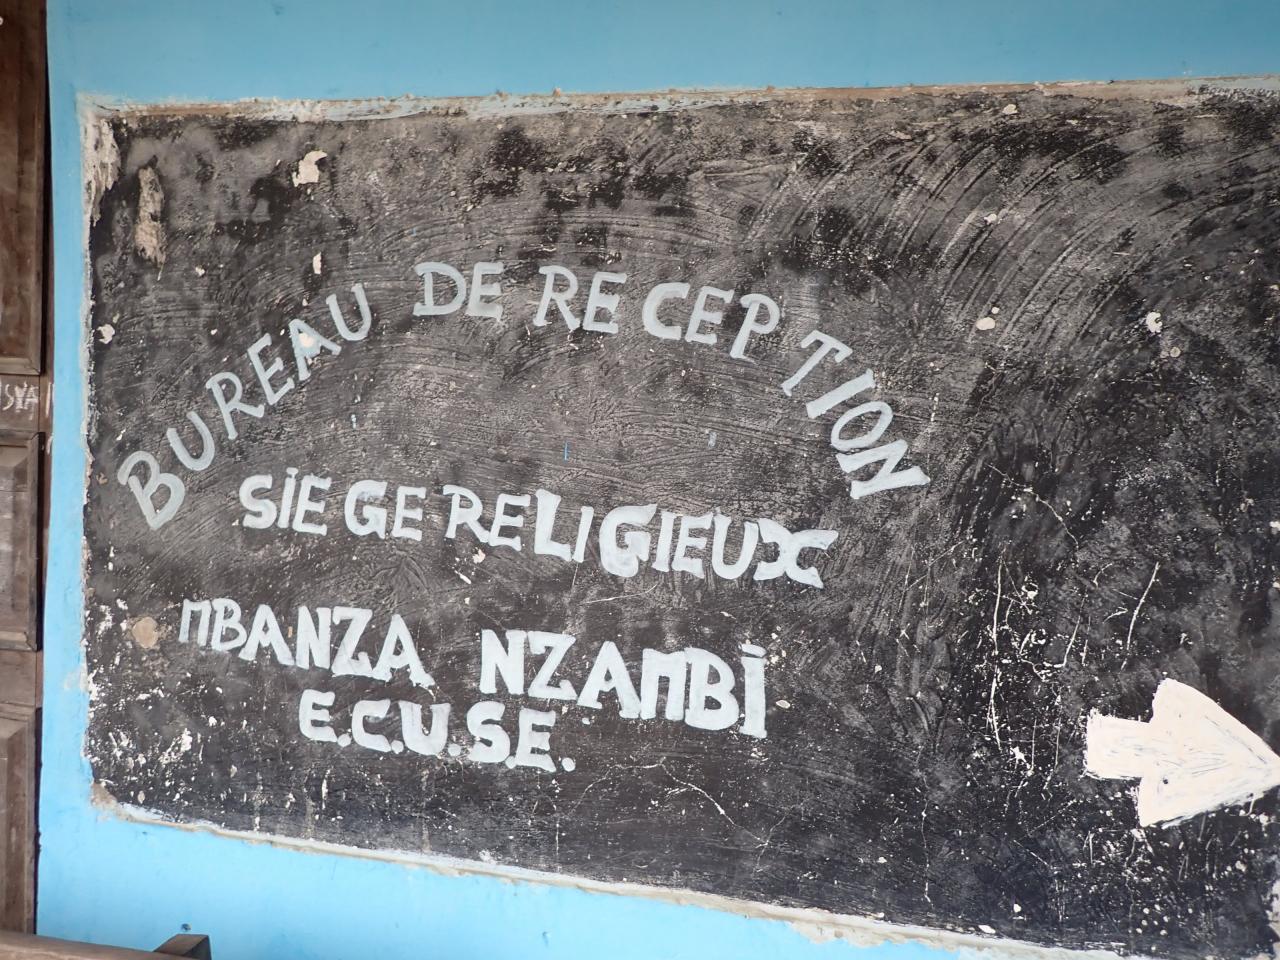 BUREAU DE RECEPTION
SIEGE RELIGIEUX
MBANZA NZAMBI
E.C.U.SE.